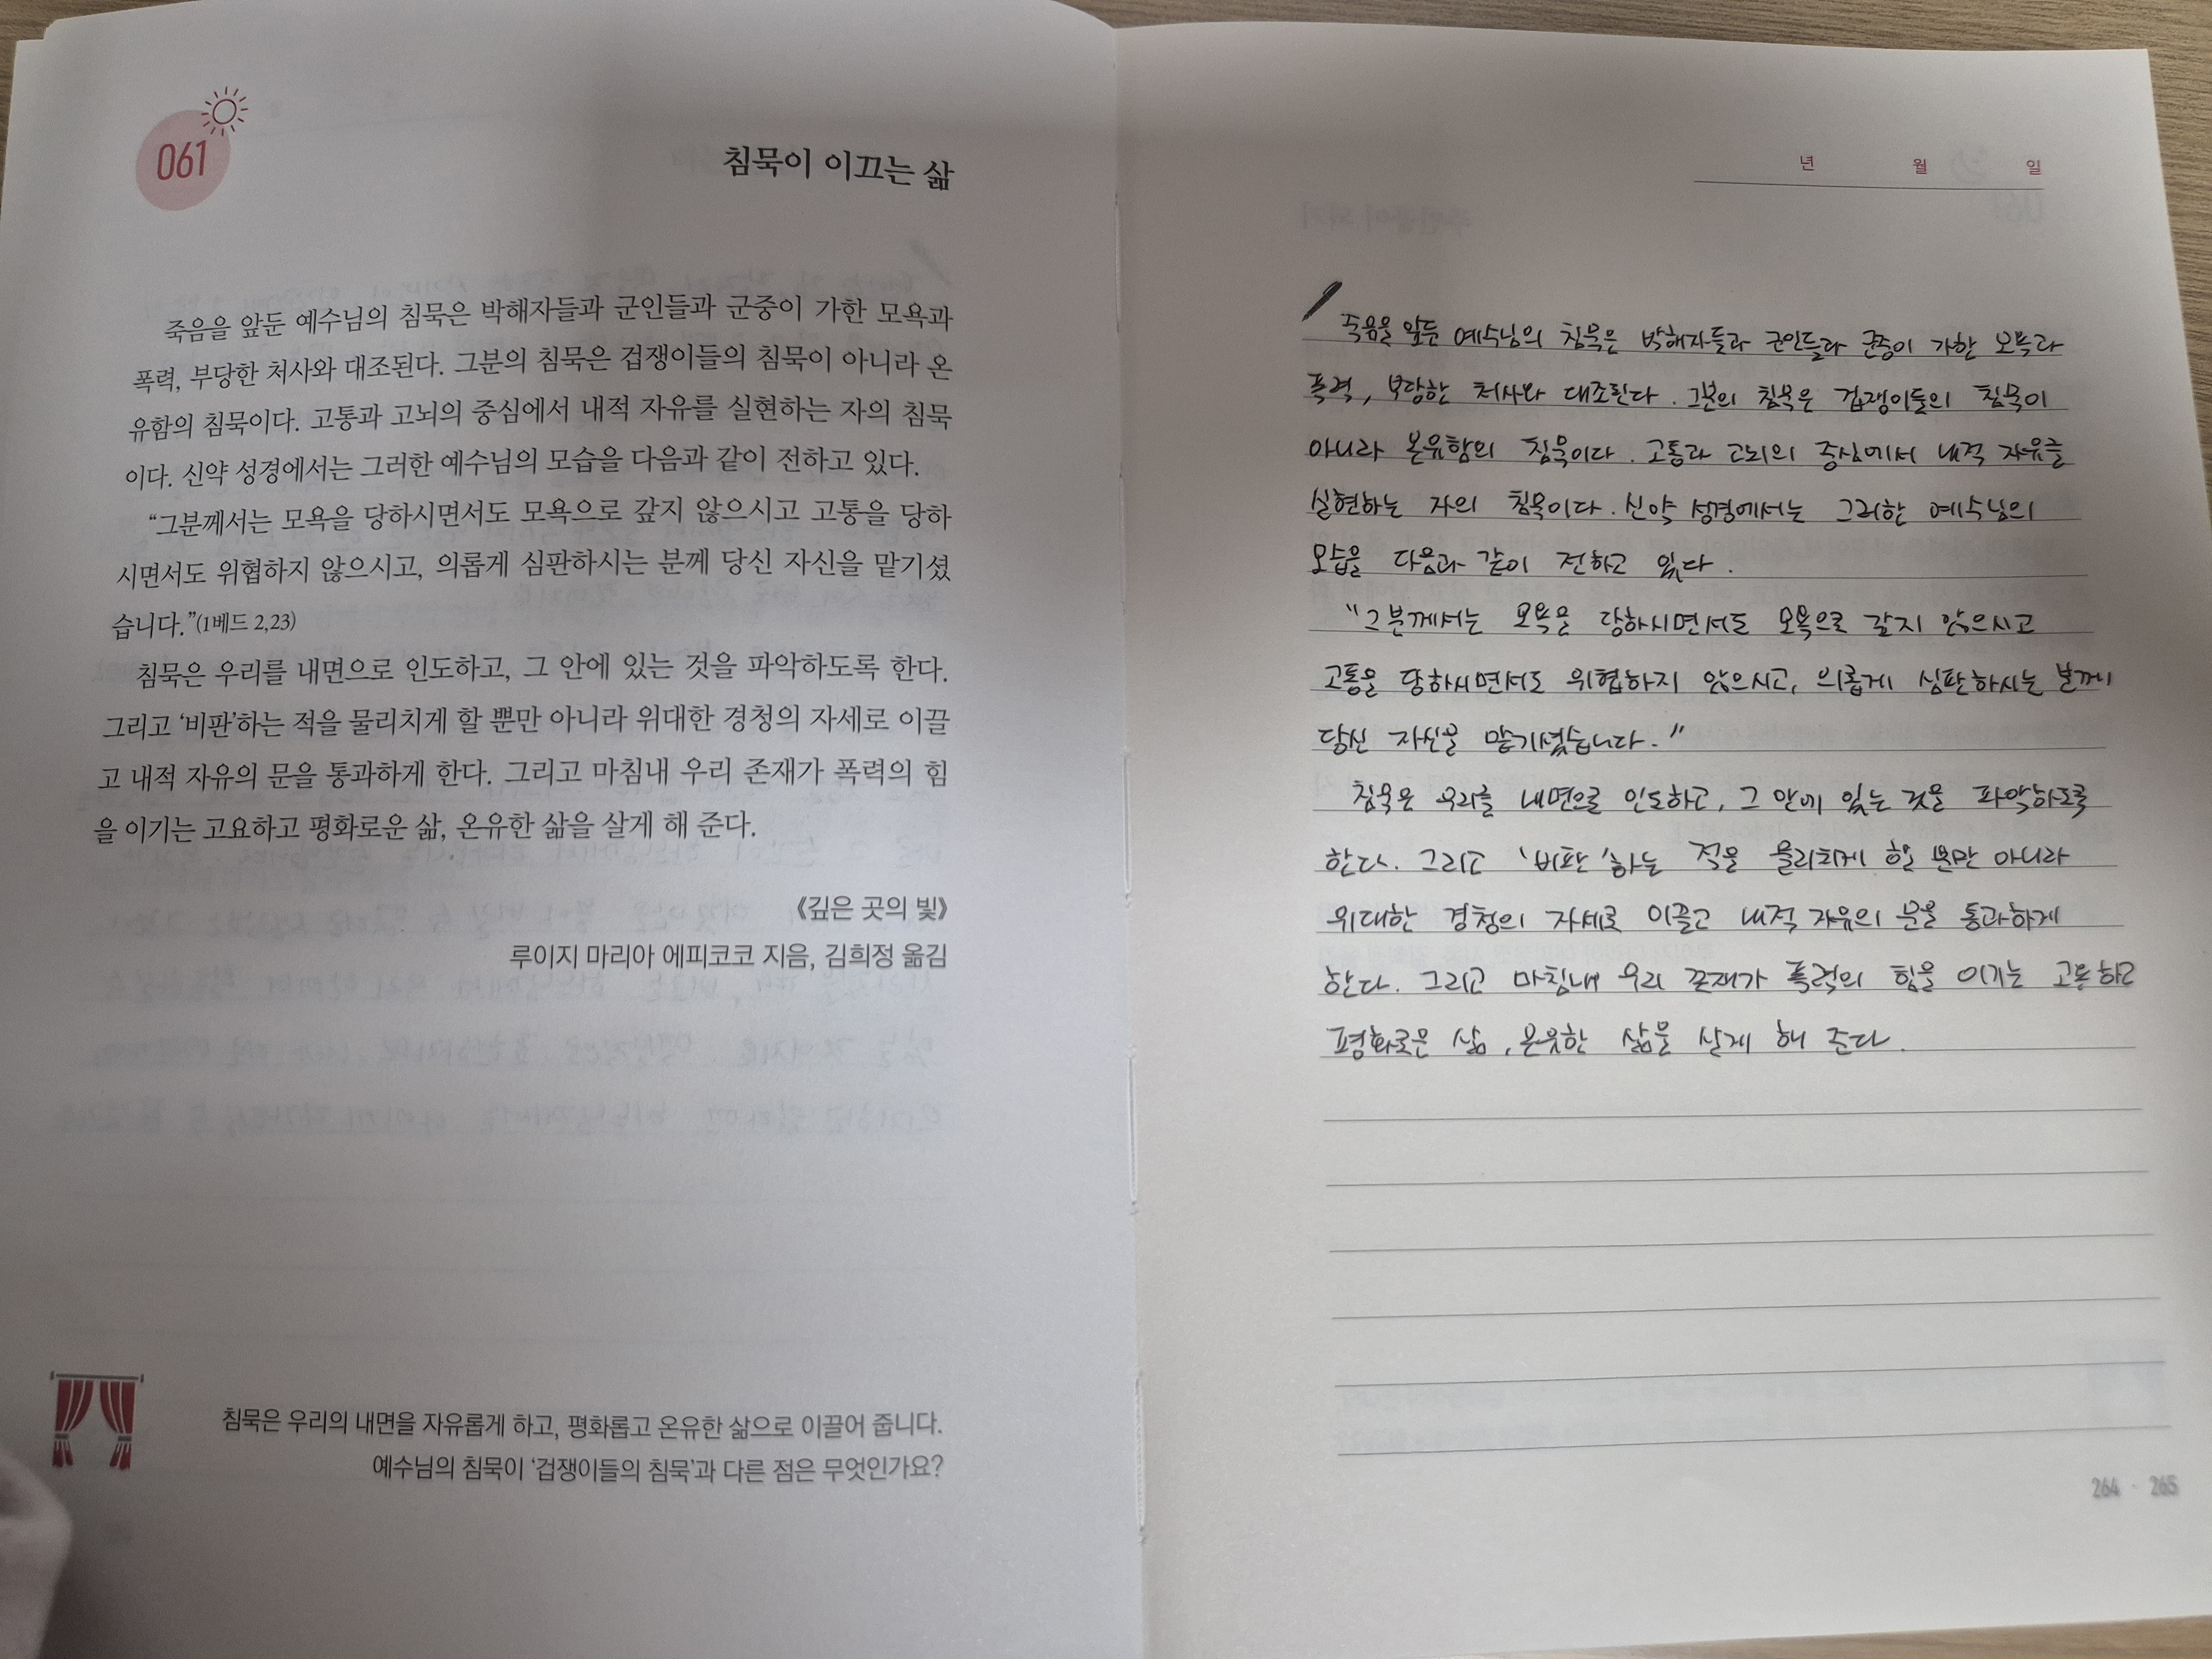 061
침묵이 이끄는 삶
죽음을 앞둔 예수님의 침묵은 박해자들과 군인들과 군중이 가한 모욕과
폭력, 부당한 처사와 대조된다. 그분의 침묵은 겁쟁이들의 침묵이 아니라 온
유함의 침묵이다. 고통과 고뇌의 중심에서 내적 자유를 실현하는 자의 침묵
이다. 신약 성경에서는 그러한 예수님의 모습을 다음과 같이 전하고 있다.
“그분께서는 모욕을 당하시면서도 모욕으로 갚지 않으시고 고통을 당하
시면서도 위협하지 않으시고, 의롭게 심판하시는 분께 당신 자신을 맡기셨
습니다.”(1베드 2,23)
침묵은 우리를 내면으로 인도하고, 그 안에 있는 것을 파악하도록 한다.
그리고 ‘비판’하는 적을 물리치게 할 뿐만 아니라 위대한 경청의 자세로 이끌
고 내적 자유의 문을 통과하게 한다. 그리고 마침내 우리 존재가 폭력의 힘
을 이기는 고요하고 평화로운 삶, 온유한 삶을 살게 해 준다.
《깊은 곳의 빛》
루이지 마리아 에피코코 지음, 김희정 옮김
침묵은 우리의 내면을 자유롭게 하고, 평화롭고 온유한 삶으로 이끌어 줍니다.
예수님의 침묵이 ‘겁쟁이들의 침묵’과 다른 점은 무엇인가요?
년 월 일
죽음을 앞둔 예수님의 침묵은 박해자들과 군인들과 군중이 가한 모욕과
폭력, 부당한 처사와 대조된다. 그분의 침묵은 겁쟁이들의 침묵이
아니라 온유함의 침묵이다. 고통과 고뇌의 중심에서 내적 자유를
실현하는 자의 침묵이다. 신약 성경에서는 그러한 예수님의
모습을 다음과 같이 전하고 있다.
“그분께서는 모욕을 당하시면서도 모욕으로 갚지 않으시고
고통을 당하시면서도 위협하지 않으시고, 의롭게 심판하시는 분께
당신 자신을 맡기셨습니다.”
침묵은 우리를 내면으로 인도하고, 그 안에 있는 것을 파악하도록
한다. 그리고 ‘비판’하는 적을 물리치게 할 뿐만 아니라
위대한 경청의 자세로 이끌고 내적 자유의 문을 통과하게
한다. 그리고 마침내 우리 존재가 폭력의 힘을 이기는
평화로운 삶, 온유한 삶을 살게 해 준다.
264 · 265